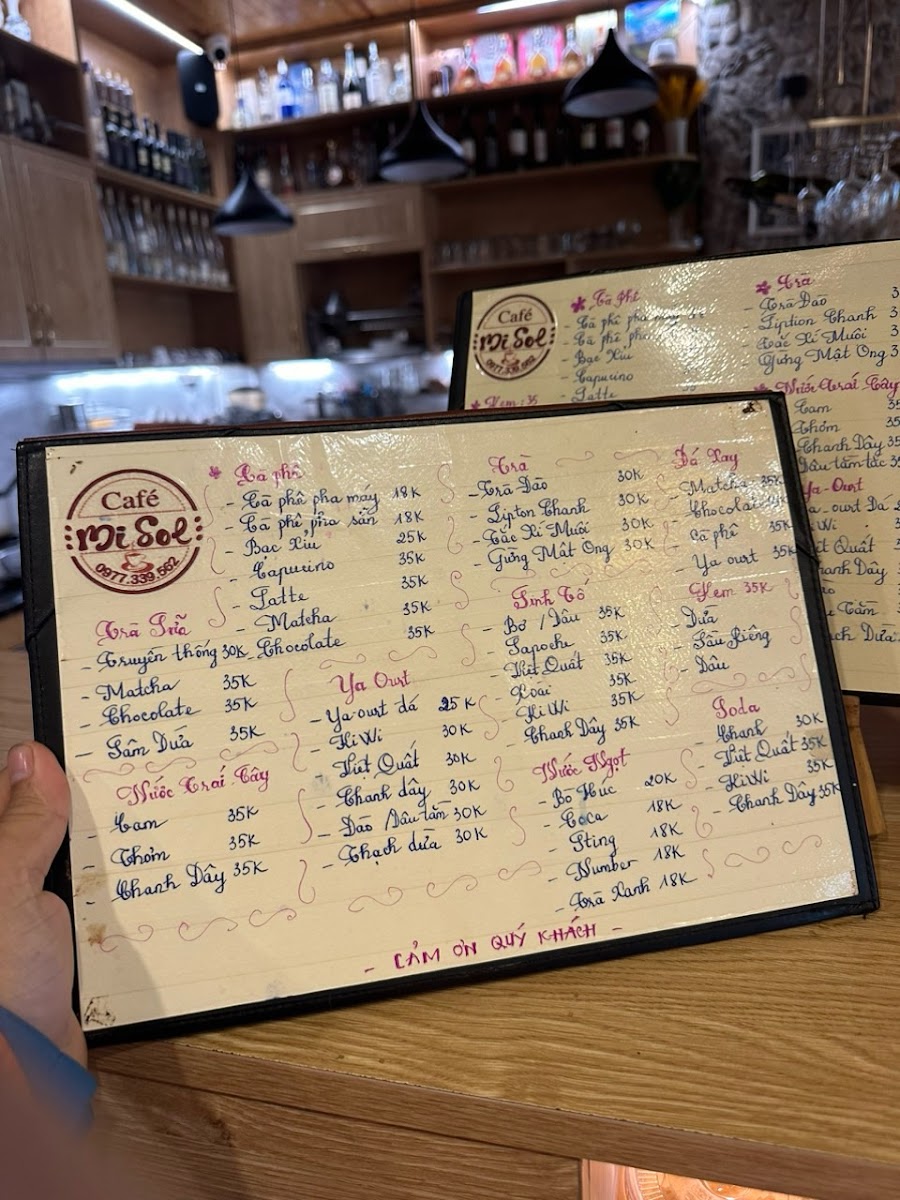 Café
Mi Sol
0977.339.562
Cà phê
- Cà phê pha máy 18K
- Cà phê pha sẵn 18K
- Bạc Xỉu 25K
- Capucino 35K
- Latte 35K
- Matcha 35K
- Chocolate 35K
Trà Sữa
- Truyền thống 30K
- Matcha 35K
- Chocolate 35K
- Sâm Dứa 35K
Nước Trái Cây
- Cam 35K
- Thơm 35K
- Chanh Dây 35K
Ya Ourt
- Ya ourt đá 25K
- KiWi 30K
- Việt Quất 30K
- Chanh dây 30K
- Đào / Dâu tằm 30K
- Thạch dừa 30K
Trà
- Trà Đào 30K
- Lipton Chanh 30K
- Tắc Xí Muội 30K
- Gừng Mật Ong 30K
Sinh Tố
- Bơ / Dâu 35K
- Sapoche 35K
- Việt Quất 35K
- Xoài 35K
- KiWi 35K
- Chanh Dây 35K
Nước Ngọt
- Bò Húc 20K
- Coca 18K
- Sting 18K
- Number 18K
- Trà Xanh 18K
Đá Xay
- Matcha 35K
- Chocolate 35K
- Cà phê 35K
- Ya ourt 35K
Kem 35K
- Dừa
- Sầu Riêng
- Dâu
Soda
- Chanh 30K
- Việt Quất 35K
- KiWi 35K
- Chanh Dây 35K
- CẢM ƠN QUÝ KHÁCH -
Café
Mi Sol
0977.339.562
Kem: 35
Cà phê
- Cà phê pha máy
- Cà phê pha
- Bạc Xỉu
- Capucino
- Latte
Trà
- Trà Đào 3
- Lipton Chanh 3
- Tắc Xí Muội 3
- Gừng Mật Ong 3
Nước Trái Cây
Cam 35
Thơm 35
Chanh Dây 35
Dâu tằm tắc 35
Ya-Ourt